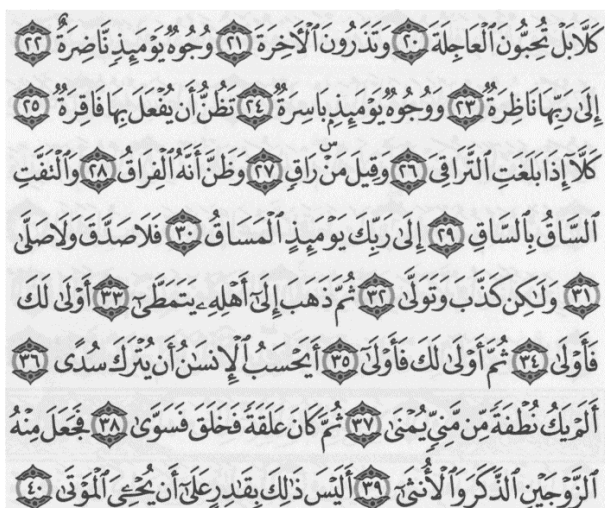 كَلَّا بَلۡ تُحِبُّونَ ٱلۡعَاجِلَةَ ٢٠ وَتَذَرُونَ ٱلۡأٓخِرَةَ ٢١ وُجُوهٞ يَوۡمَئِذٖ نَّاضِرَةٌ ٢٢
إِلَىٰ رَبِّهَا نَاظِرَةٞ ٢٣ وَوُجُوهٞ يَوۡمَئِذِۭ بَاسِرَةٞ ٢٤ تَظُنُّ أَن يُفۡعَلَ بِهَا فَاقِرَةٞ ٢٥
كَلَّآ إِذَا بَلَغَتِ ٱلتَّرَاقِيَ ٢٦ وَقِيلَ مَنۡۜ رَاقٖ ٢٧ وَظَنَّ أَنَّهُ ٱلۡفِرَاقُ ٢٨ وَٱلۡتَفَّتِ
ٱلسَّاقُ بِٱلسَّاقِ ٢٩ إِلَىٰ رَبِّكَ يَوۡمَئِذٍ ٱلۡمَسَاقُ ٣٠ فَلَا صَدَّقَ وَلَا صَلَّىٰ
٣١ وَلَٰكِن كَذَّبَ وَتَوَلَّىٰ ٣٢ ثُمَّ ذَهَبَ إِلَىٰٓ أَهۡلِهِۦ يَتَمَطَّىٰٓ ٣٣ أَوۡلَىٰ لَكَ
فَأَوۡلَىٰ ٣٤ ثُمَّ أَوۡلَىٰ لَكَ فَأَوۡلَىٰٓ ٣٥ أَيَحۡسَبُ ٱلۡإِنسَٰنُ أَن يُتۡرَكَ سُدًى ٣٦
أَلَمۡ يَكُ نُطۡفَةٗ مِّن مَّنِيّٖ يُمۡنَىٰ ٣٧ ثُمَّ كَانَ عَلَقَةٗ فَخَلَقَ فَسَوَّىٰ ٣٨ فَجَعَلَ مِنۡهُ
ٱلزَّوۡجَيۡنِ ٱلذَّكَرَ وَٱلۡأُنثَىٰٓ ٣٩ أَلَيۡسَ ذَٰلِكَ بِقَٰدِرٍ عَلَىٰٓ أَن يُحۡـِۧيَ ٱلۡمَوۡتَىٰ ٤٠